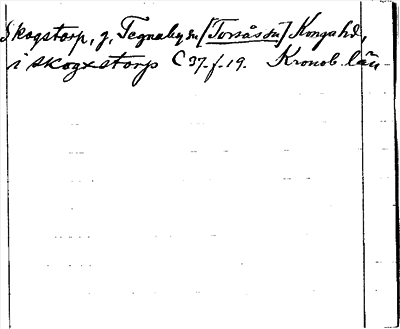 Skogstorp, g, Tegnaby sn [Torsås sn] Konga hd,
i skogxstorp C 37. f. 19. Kronob. län